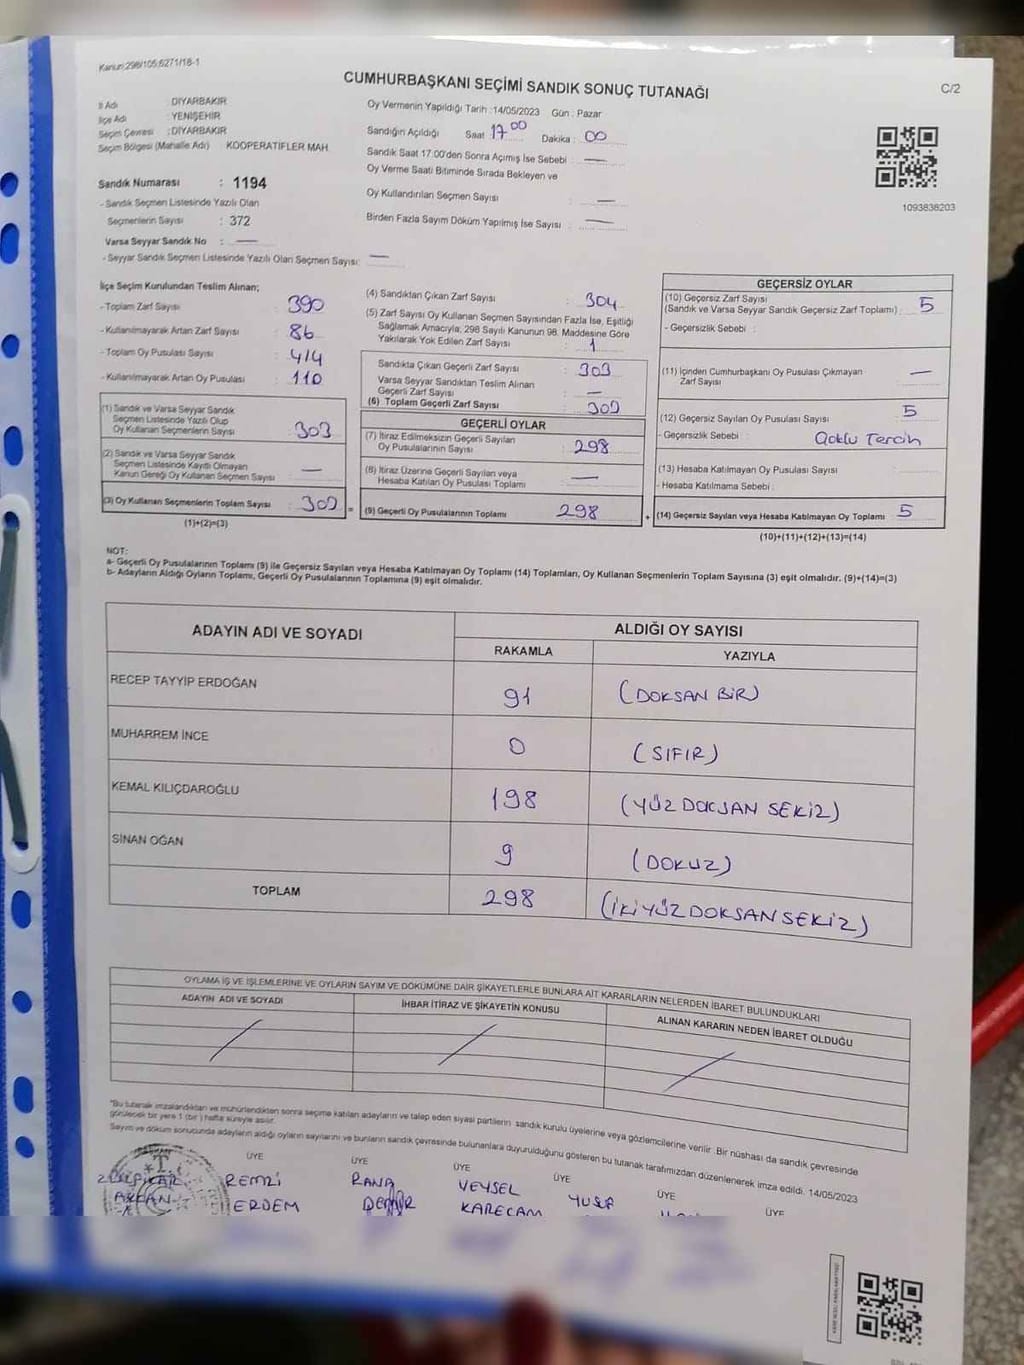 Kanun:298/105;6271/18-1
CUMHURBAŞKANI SEÇİMİ SANDIK SONUÇ TUTANAĞI
C/2
İl Adı : DİYARBAKIR
İlçe Adı : YENİŞEHİR
Seçim Çevresi : DİYARBAKIR
Seçim Bölgesi (Mahalle Adı) KOOPERATİFLER MAH.
Oy Vermenin Yapıldığı Tarih :14/05/2023 Gün : Pazar
Sandığın Açıldığı Saat 17 00 Dakika : 00
Sandık Saat 17.00'den Sonra Açımış İse Sebebi : —
Oy Verme Saati Bitiminde Sırada Bekleyen ve
Oy Kullandırılan Seçmen Sayısı : —
Birden Fazla Sayım Döküm Yapılmış İse Sayısı : —
1093838203
Sandık Numarası : 1194
- Sandık Seçmen Listesinde Yazılı Olan
Seçmenlerin Sayısı : 372
Varsa Seyyar Sandık No : —
- Seyyar Sandık Seçmen Listesinde Yazılı Olan Seçmen Sayısı: —
İlçe Seçim Kurulundan Teslim Alınan;
- Toplam Zarf Sayısı : 390
- Kullanılmayarak Artan Zarf Sayısı : 86
- Toplam Oy Pusulası Sayısı : 414
- Kullanılmayarak Artan Oy Pusulası : 110
(1) Sandık ve Varsa Seyyar Sandık
Seçmen Listesinde Yazılı Olup
Oy Kullanan Seçmenlerin Sayısı : 303
(2) Sandık ve Varsa Seyyar Sandık
Seçmen Listesinde Kayıtlı Olmayan
Kanun Gereği Oy Kullanan Seçmen Sayısı : —
(3) Oy Kullanan Seçmenlerin Toplam Sayısı : 303 =
(1)+(2)=(3)
(4) Sandıktan Çıkan Zarf Sayısı : 304
(5) Zarf Sayısı Oy Kullanan Seçmen Sayısından Fazla İse, Eşitliği
Sağlamak Amacıyla; 298 Sayılı Kanunun 98. Maddesine Göre
Yakılarak Yok Edilen Zarf Sayısı : 1
Sandıkta Çıkan Geçerli Zarf Sayısı : 303
Varsa Seyyar Sandıktan Teslim Alınan
Geçerli Zarf Sayısı : —
(6) Toplam Geçerli Zarf Sayısı : 303
GEÇERLİ OYLAR
(7) İtiraz Edilmeksizin Geçerli Sayılan
Oy Pusulalarının Sayısı : 298
(8) İtiraz Üzerine Geçerli Sayılan veya
Hesaba Katılan Oy Pusulası Toplamı : —
(9) Geçerli Oy Pusulalarının Toplamı : 298 +
GEÇERSİZ OYLAR
(10) Geçersiz Zarf Sayısı
(Sandık ve Varsa Seyyar Sandık Geçersiz Zarf Toplamı) : 5
- Geçersizlik Sebebi :
(11) İçinden Cumhurbaşkanı Oy Pusulası Çıkmayan
Zarf Sayısı : —
(12) Geçersiz Sayılan Oy Pusulası Sayısı : 5
- Geçersizlik Sebebi : Çoklu Tercih
(13) Hesaba Katılmayan Oy Pusulası Sayısı :
- Hesaba Katılmama Sebebi :
(14) Geçersiz Sayılan veya Hesaba Katılmayan Oy Toplamı : 5
(10)+(11)+(12)+(13)=(14)
NOT:
a- Geçerli Oy Pusulalarının Toplamı (9) ile Geçersiz Sayılan veya Hesaba Katılmayan Oy Toplamı (14) Toplamları, Oy Kullanan Seçmenlerin Toplam Sayısına (3) eşit olmalıdır. (9)+(14)=(3)
b- Adayların Aldığı Oyların Toplamı, Geçerli Oy Pusulalarının Toplamına (9) eşit olmalıdır.
ADAYIN ADI VE SOYADI ALDIĞI OY SAYISI
RAKAMLA YAZIYLA
RECEP TAYYİP ERDOĞAN 91 (DOKSAN BİR)
MUHARREM İNCE 0 (SIFIR)
KEMAL KILIÇDAROĞLU 198 (YÜZ DOKSAN SEKİZ)
SİNAN OĞAN 9 (DOKUZ)
TOPLAM 298 (İKİ YÜZ DOKSAN SEKİZ)
OYLAMA İŞ VE İŞLEMLERİNE VE OYLARIN SAYIM VE DÖKÜMÜNE DAİR ŞİKAYETLERLE BUNLARA AİT KARARLARIN NELERDEN İBARET BULUNDUKLARI
ADAYIN ADI VE SOYADI İHBAR İTİRAZ VE ŞİKAYETİN KONUSU ALINAN KARARIN NEDEN İBARET OLDUĞU
*Bu tutanak imzalandıktan ve mühürlendikten sonra seçime katılan adayların ve talep eden siyasi partilerin sandık kurulu üyelerine veya gözlemcilerine verilir. Bir nüshası da sandık çevresinde
görülecek bir yere 1 (bir) hafta süreyle asılır.
Sayım ve döküm sonucunda adayların aldığı oyların sayılarını ve bunların sandık çevresinde bulunanlara duyurulduğunu gösteren bu tutanak tarafımızdan düzenlenerek imza edildi. 14/05/2023
ÜYE ÜYE ÜYE ÜYE ÜYE ÜYE
T.C.
REMZİ RANA VEYSEL YUSUF
ERDEM DEMİR KARECAM